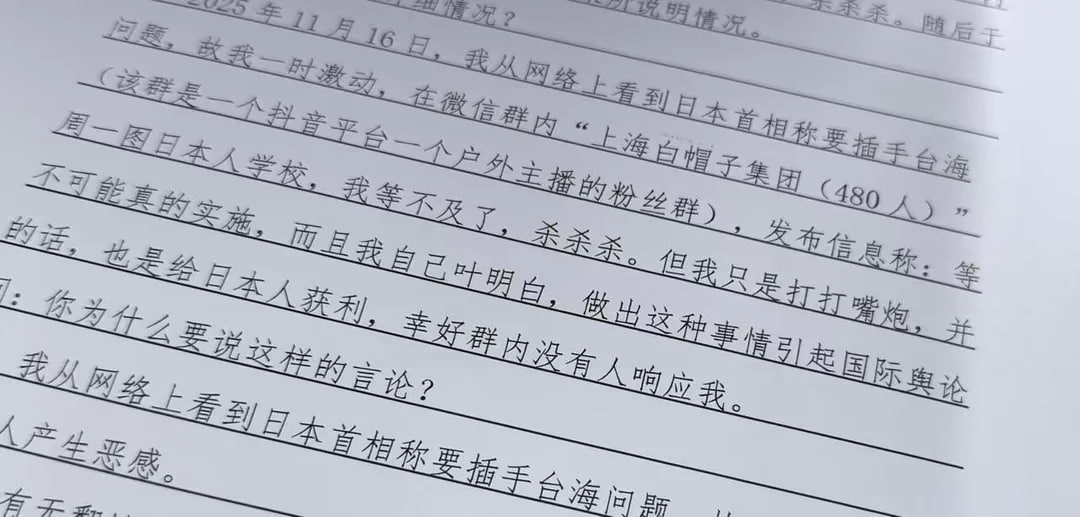 杀杀杀。随后于
说明情况。
细情况？
2025 年 11 月 16 日，我从网络上看到日本首相称要插手台海
问题，故我一时激动，在微信群内“上海白帽子集团（480 人）”
（该群是一个抖音平台一个户外主播的粉丝群），发布信息称：等
周一图日本人学校，我等不及了，杀杀杀。但我只是打打嘴炮，并
不可能真的实施，而且我自己叶明白，做出这种事情引起国际舆论
的话，也是给日本人获利，幸好群内没有人响应我。
：你为什么要说这样的言论？
我从网络上看到日本首相称要插手台海问题
人产生恶感。
有无翻